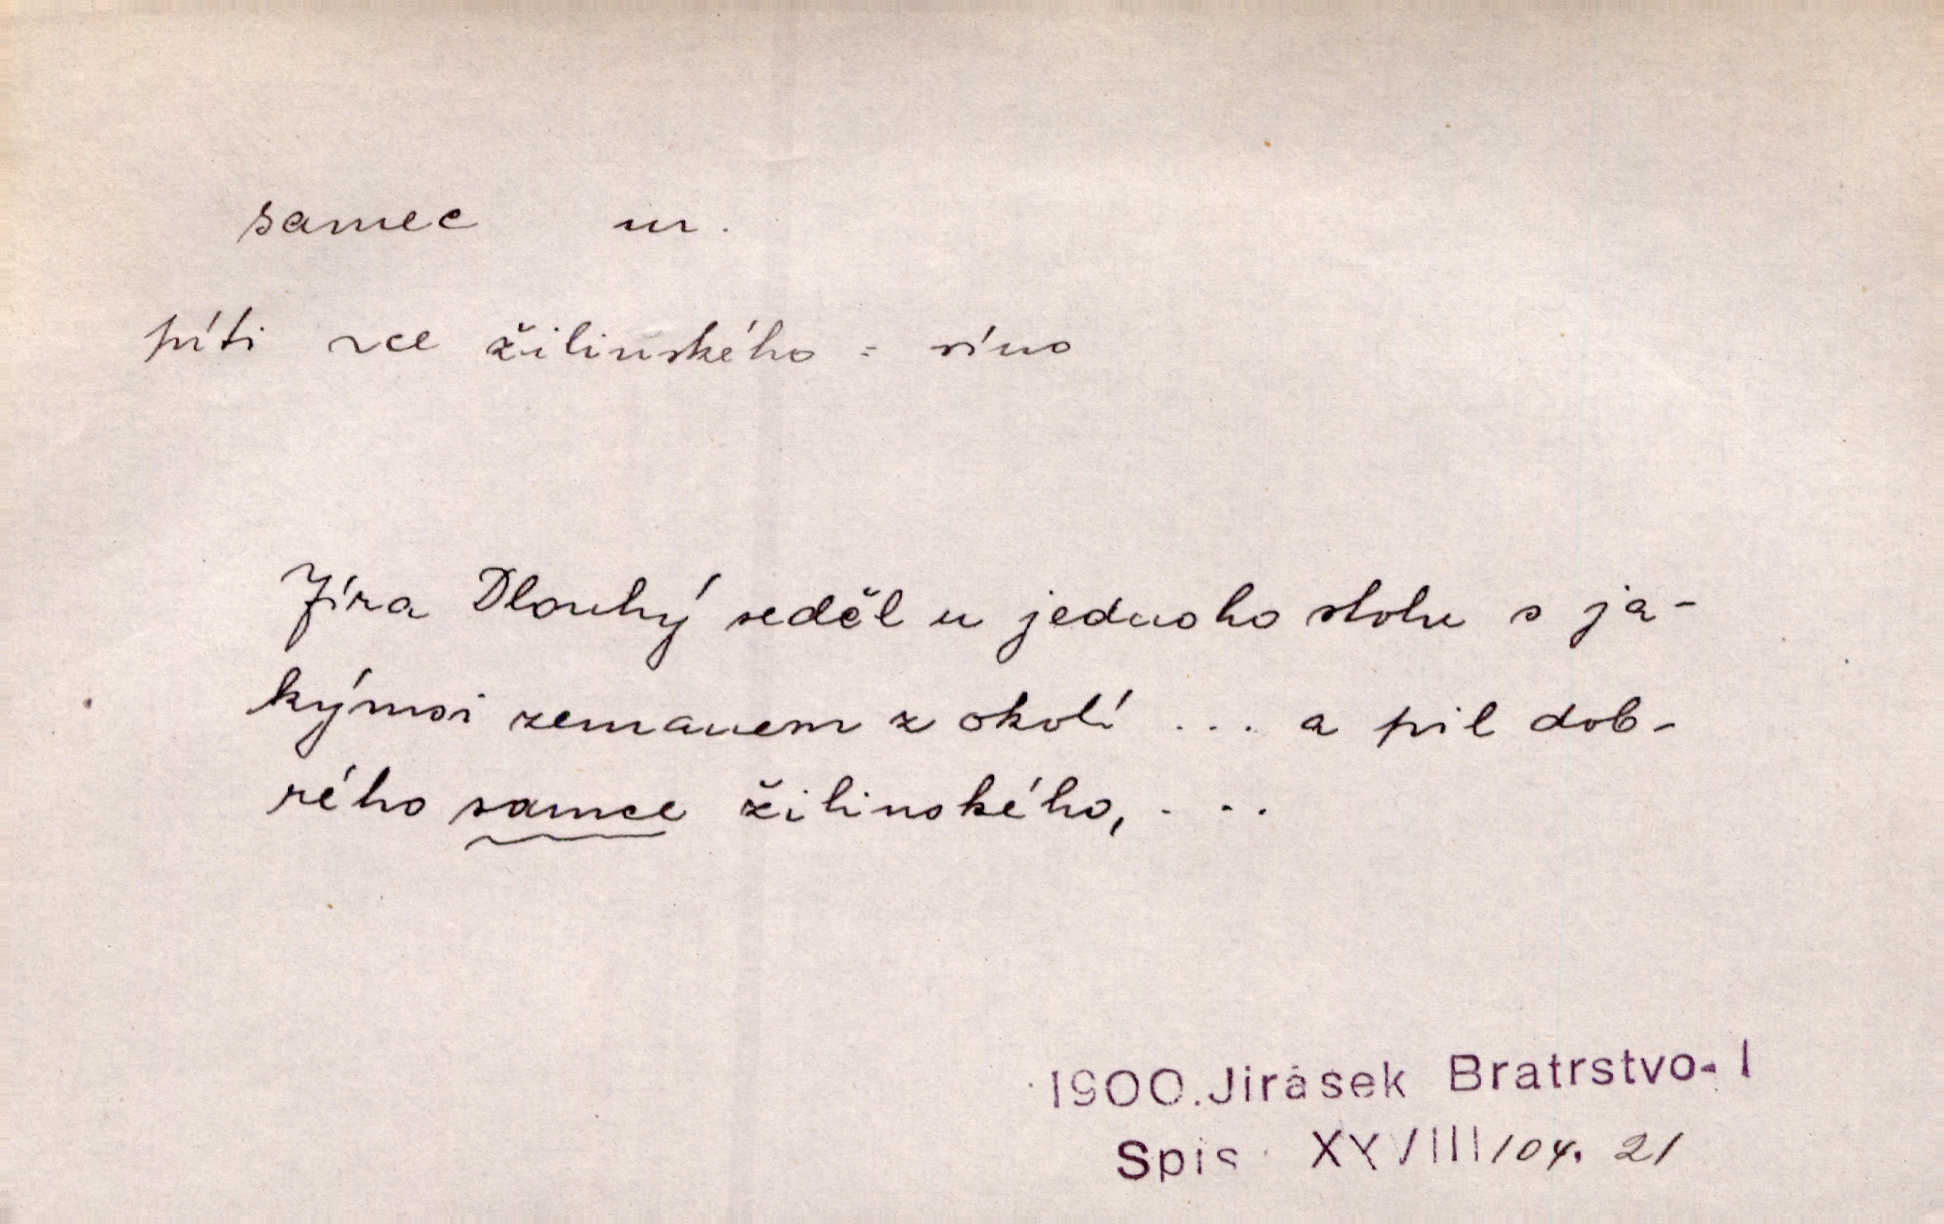 samec m.
píti ~ce žilinského = víno
Jíra Dlouhý seděl u jednoho stolu s ja-
kýmsi zemanem z okolí ... a pil dob-
rého samce žilinského, ...
1900. Jirásek Bratrstvo-I
Spis XXVIII/04. 21